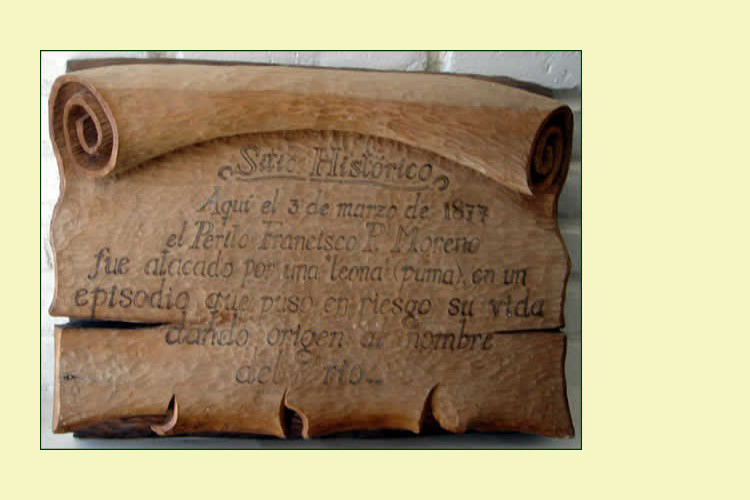 Sitio Histórico
Aquí el 3 de marzo de 1877
el Perito Francisco P. Moreno
fue atacado por una "leona" (puma), en un
episodio que puso en riesgo su vida
dando origen al nombre
del río...